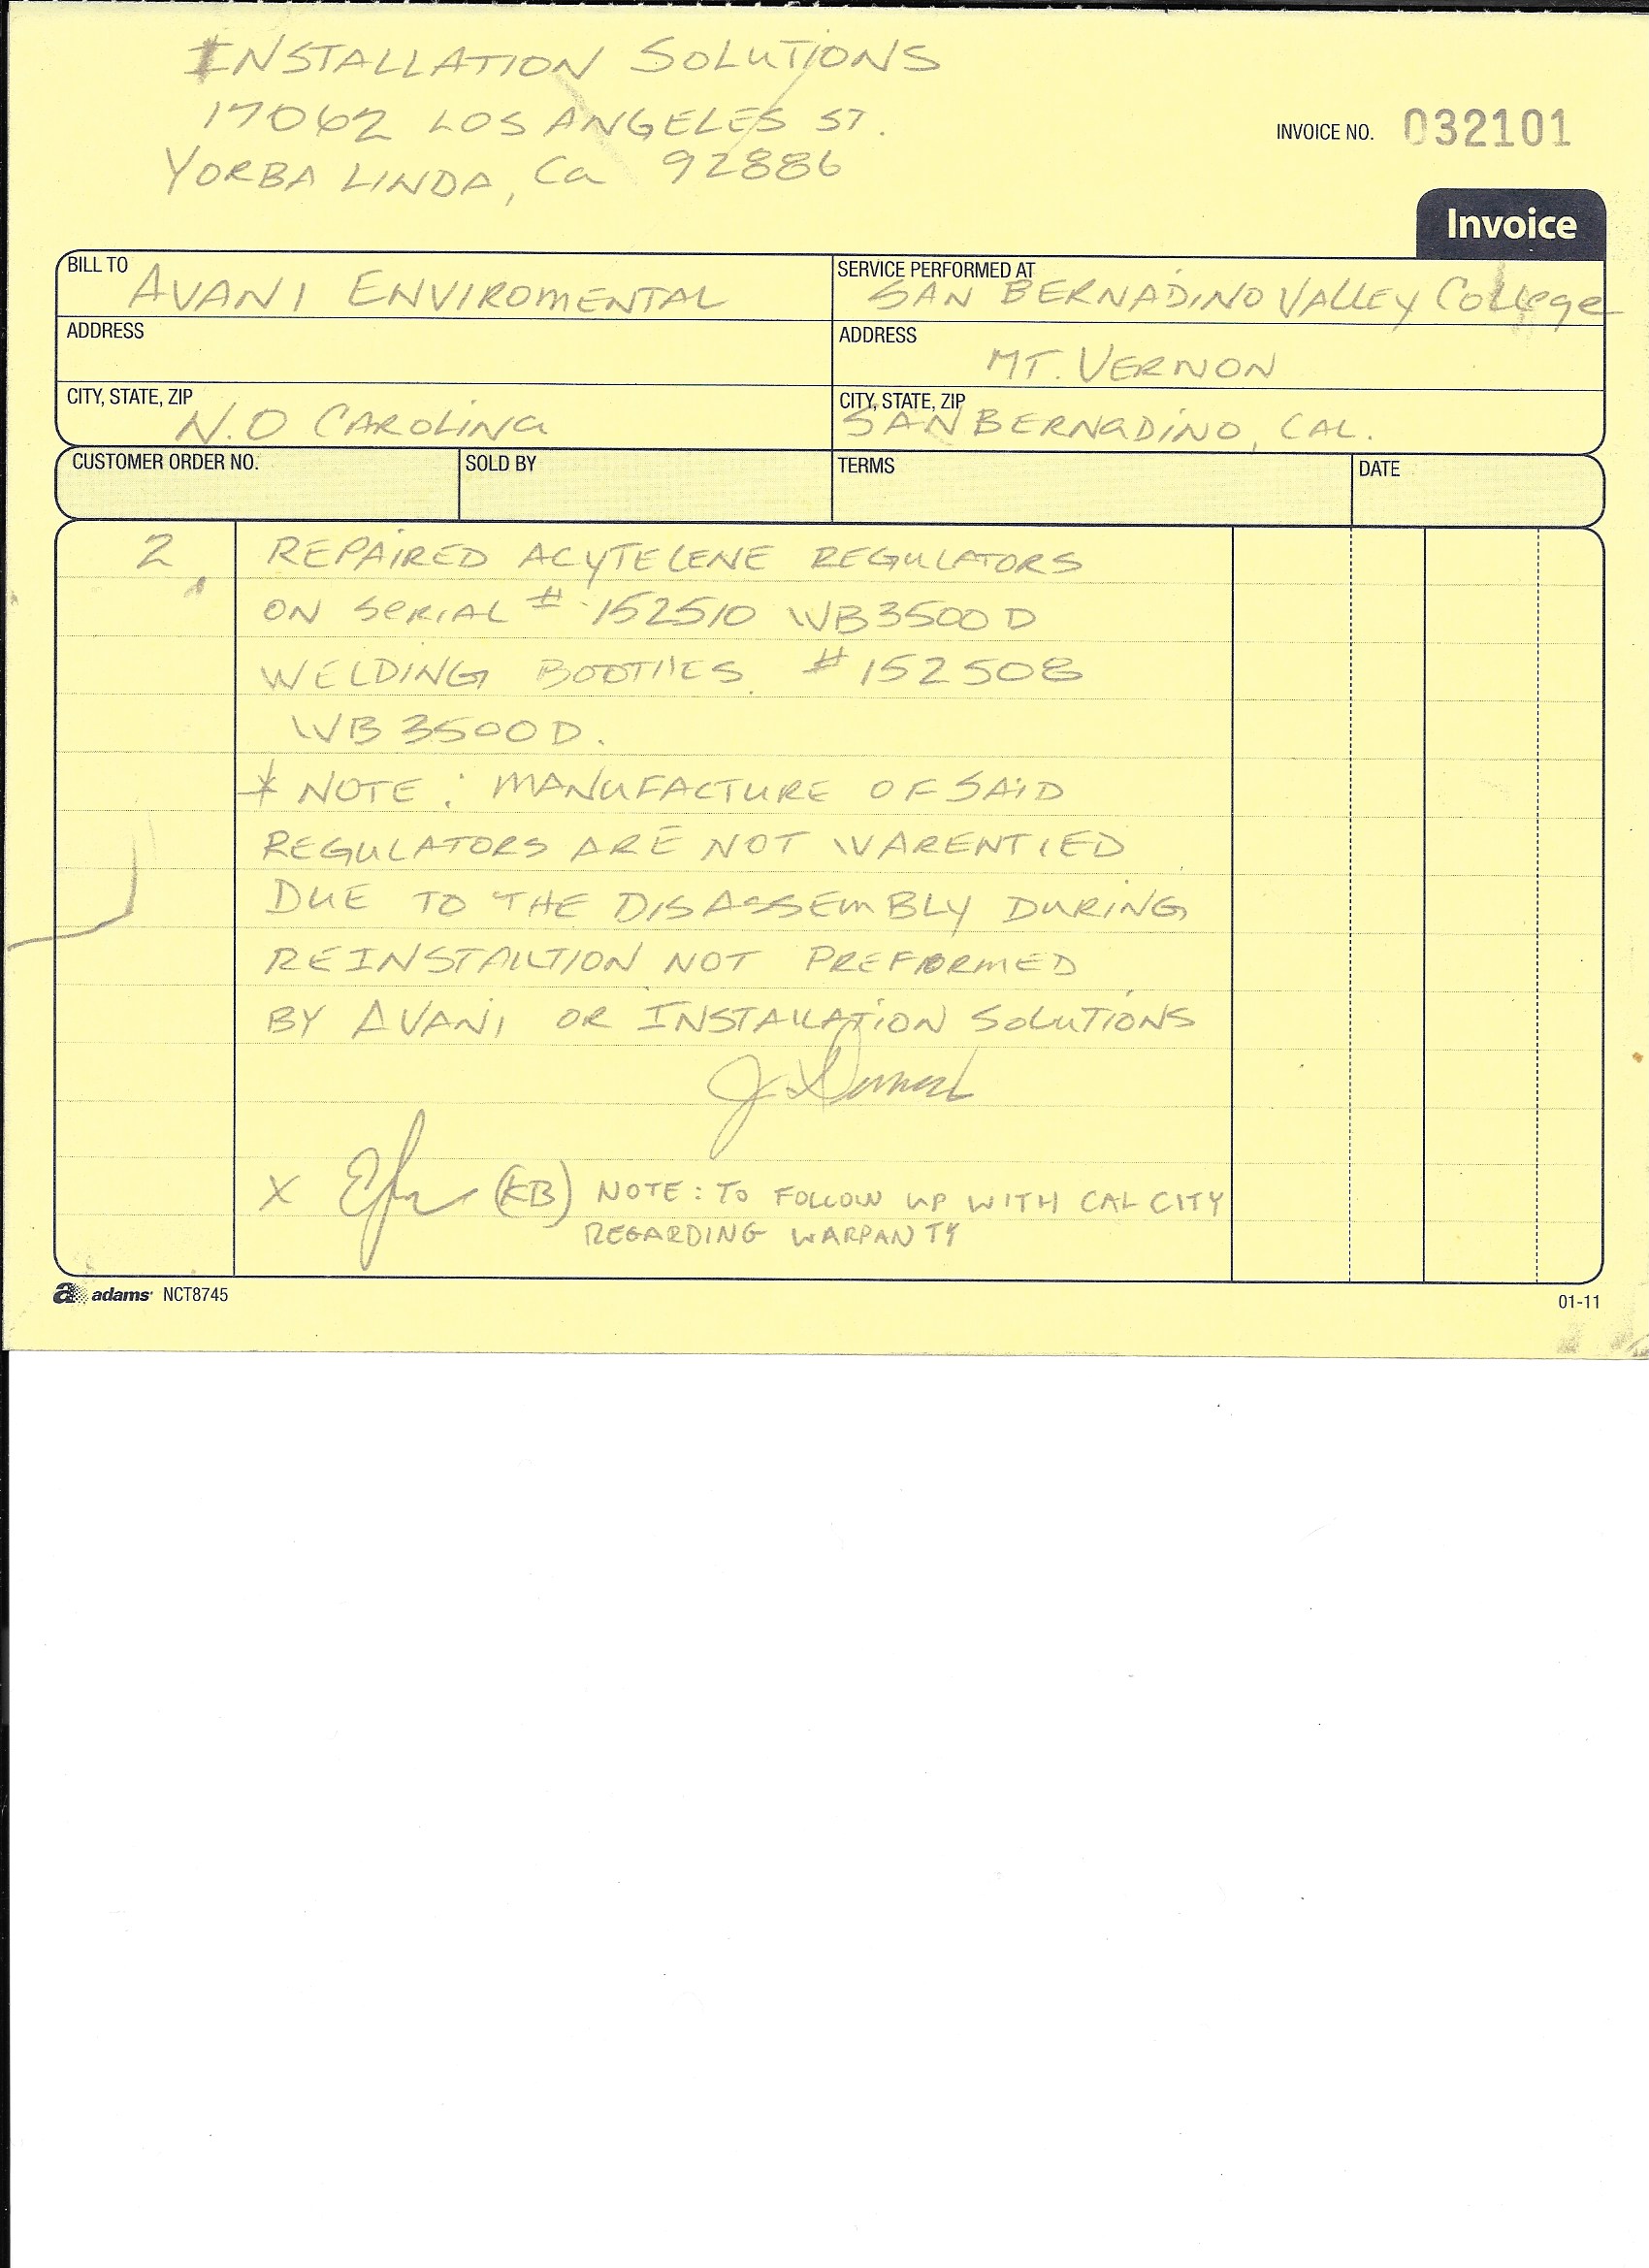 INSTALLATION SOLUTIONS
17062 LOS ANGELES ST.
INVOICE NO. 032101
YORBA LINDA, Ca 92886
Invoice
BILL TO AVANI ENVIROMENTAL
SERVICE PERFORMED AT SAN BERNADINO VALLEY College
ADDRESS
ADDRESS MT. VERNON
CITY, STATE, ZIP N.O CAROLINA
CITY, STATE, ZIP SAN BERNADINO, CAL.
CUSTOMER ORDER NO. SOLD BY TERMS DATE
2 REPAIRED ACYTELENE REGULATORS
ON SERIAL # 152510 WB3500D
WELDING BOOTHES # 152508
WB3500D.
* NOTE: MANUFACTURE OF SAID
REGULATORS ARE NOT WARENTIED
DUE TO THE DISASSEMBLY DURING
REINSTALLTION NOT PREFORMED
BY AVANI OR INSTALLATION SOLUTIONS
X (KB) NOTE: TO FOLLOW UP WITH CAL CITY
REGARDING WARRANTY
adams NCT8745
01-11